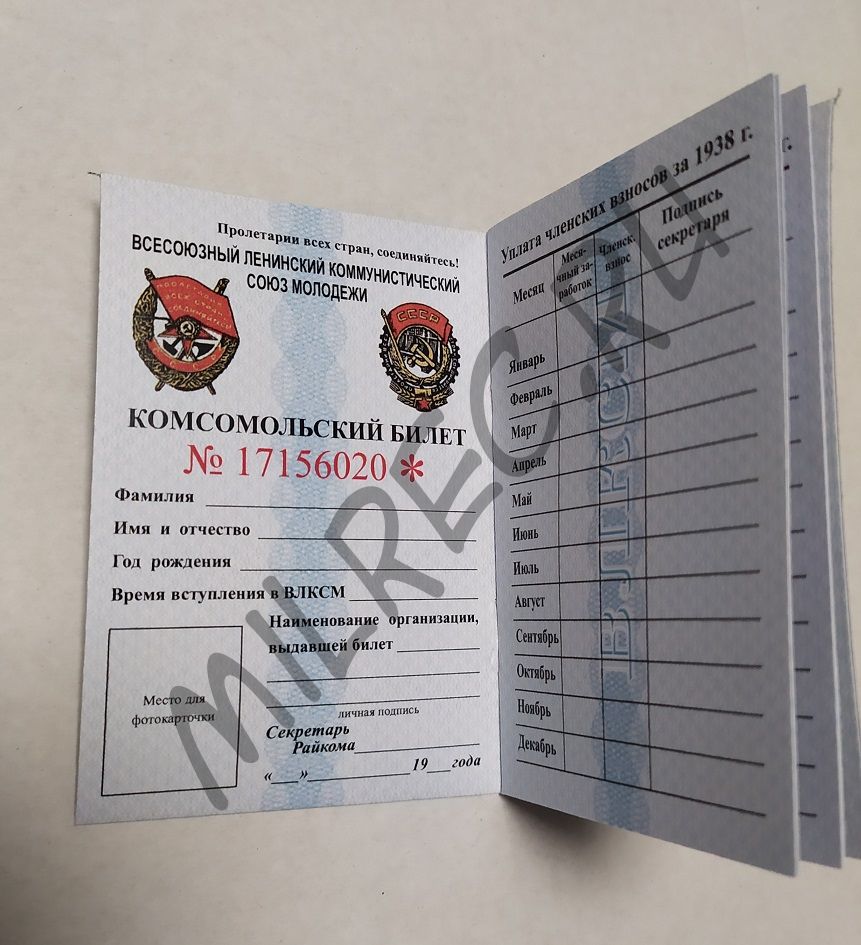 Пролетарии всех стран, соединяйтесь!
ВСЕСОЮЗНЫЙ ЛЕНИНСКИЙ КОММУНИСТИЧЕСКИЙ
СОЮЗ МОЛОДЕЖИ
СССР
КОМСОМОЛЬСКИЙ БИЛЕТ
№ 17156020 *
Фамилия
Имя и отчество
Год рождения
Время вступления в ВЛКСМ
Наименование организации,
выдавшей билет
Место для
фотокарточки
личная подпись
Секретарь
Райкома
«___»__________19___года
Уплата членских взносов за 1938 г.
Месяц
Меся-
чный за-
работок
Членск.
взнос
Подпись
секретаря
Январь
Февраль
Март
Апрель
Май
Июнь
Июль
Август
Сентябрь
Октябрь
Ноябрь
Декабрь
ВЛКСМ
г.
MILREC.RU